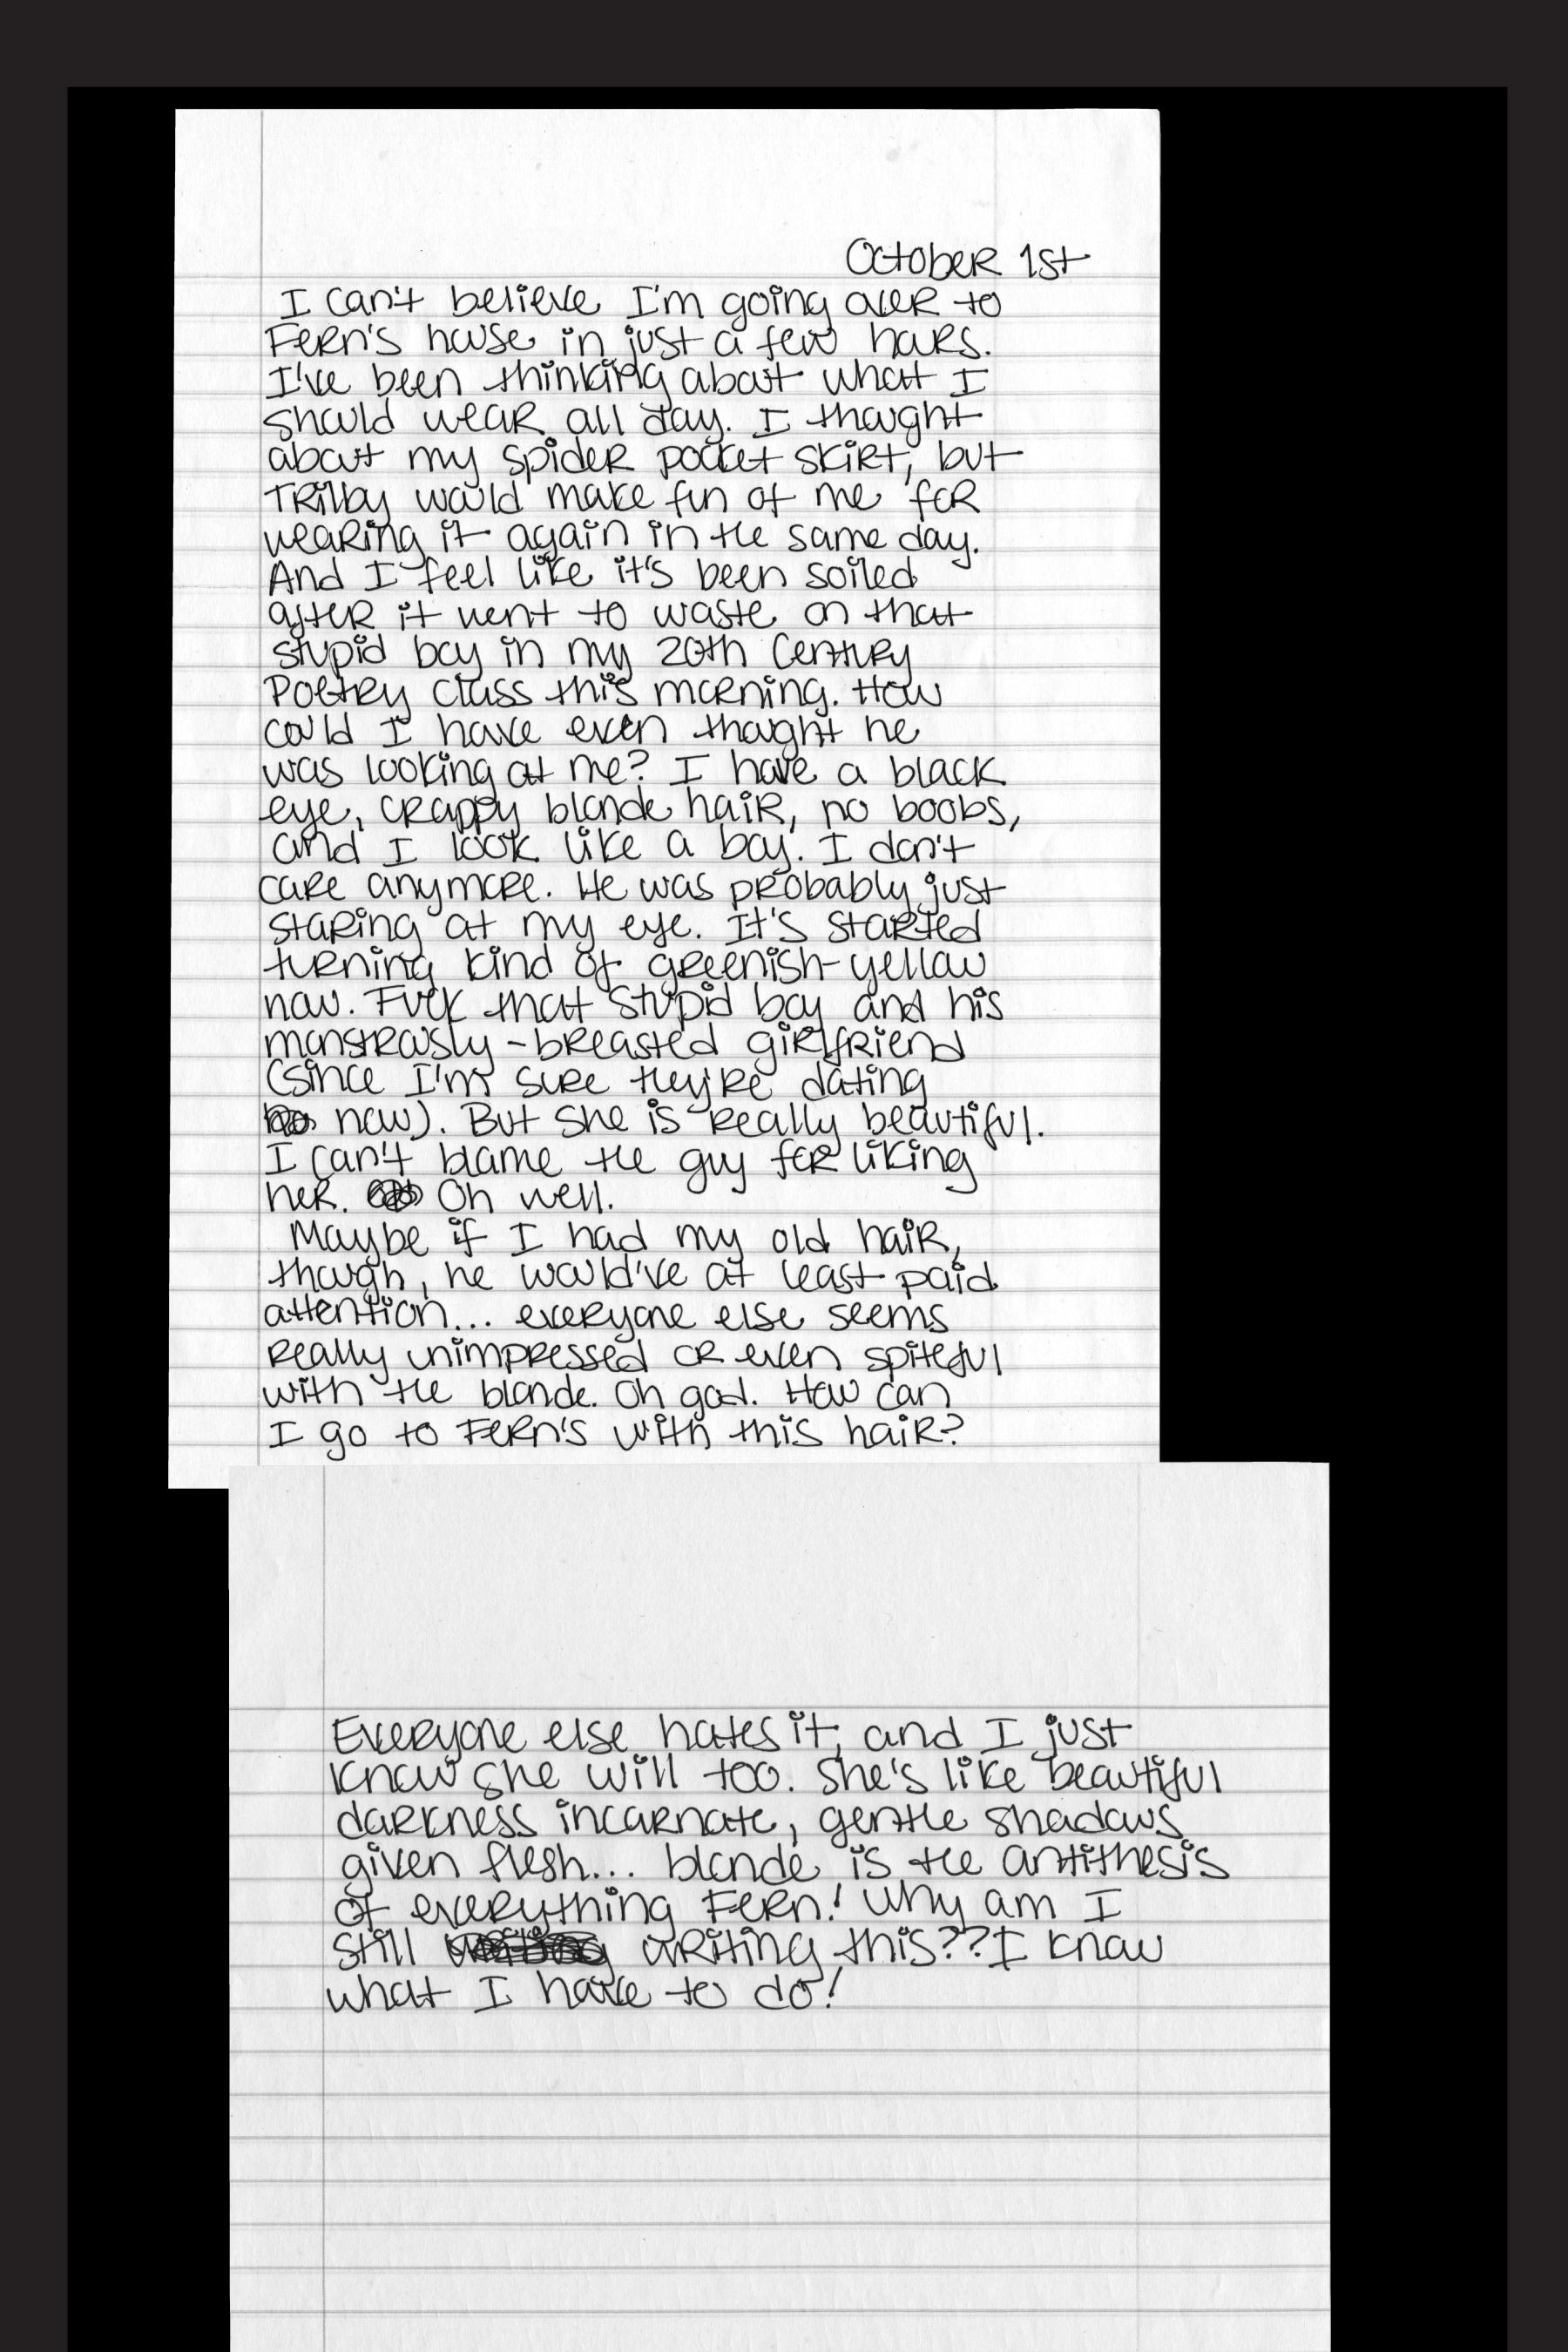 October 1st
I can't believe I'm going over to
Fern's house in just a few hours.
I've been thinking about what I
should wear all day. I thought
about my spider pocket skirt, but
Trilby would make fun of me for
wearing it again in the same day.
And I feel like it's been soiled
after it went to waste on that
stupid boy in my 20th Century
Poetry class this morning. How
could I have even thought he
was looking at me? I have a black
eye, crappy blonde hair, no boobs,
and I look like a boy. I don't
care anymore. He was probably just
staring at my eye. It's started
turning kind of greenish-yellow
now. Fuck that stupid boy and his
monstrously-breasted girlfriend
(since I'm sure they're dating
now). But she is really beautiful.
I can't blame the guy for liking
her. Oh well.
Maybe if I had my old hair,
though, he would've at least paid
attention... everyone else seems
really unimpressed or even spiteful
with the blonde. Oh god. How can
I go to Fern's with this hair?
Everyone else hates it, and I just
know she will too. She's like beautiful
darkness incarnate, gentle shadows
given flesh... blonde is the antithesis
of everything Fern! Why am I
still writing this?? I know
what I have to do!